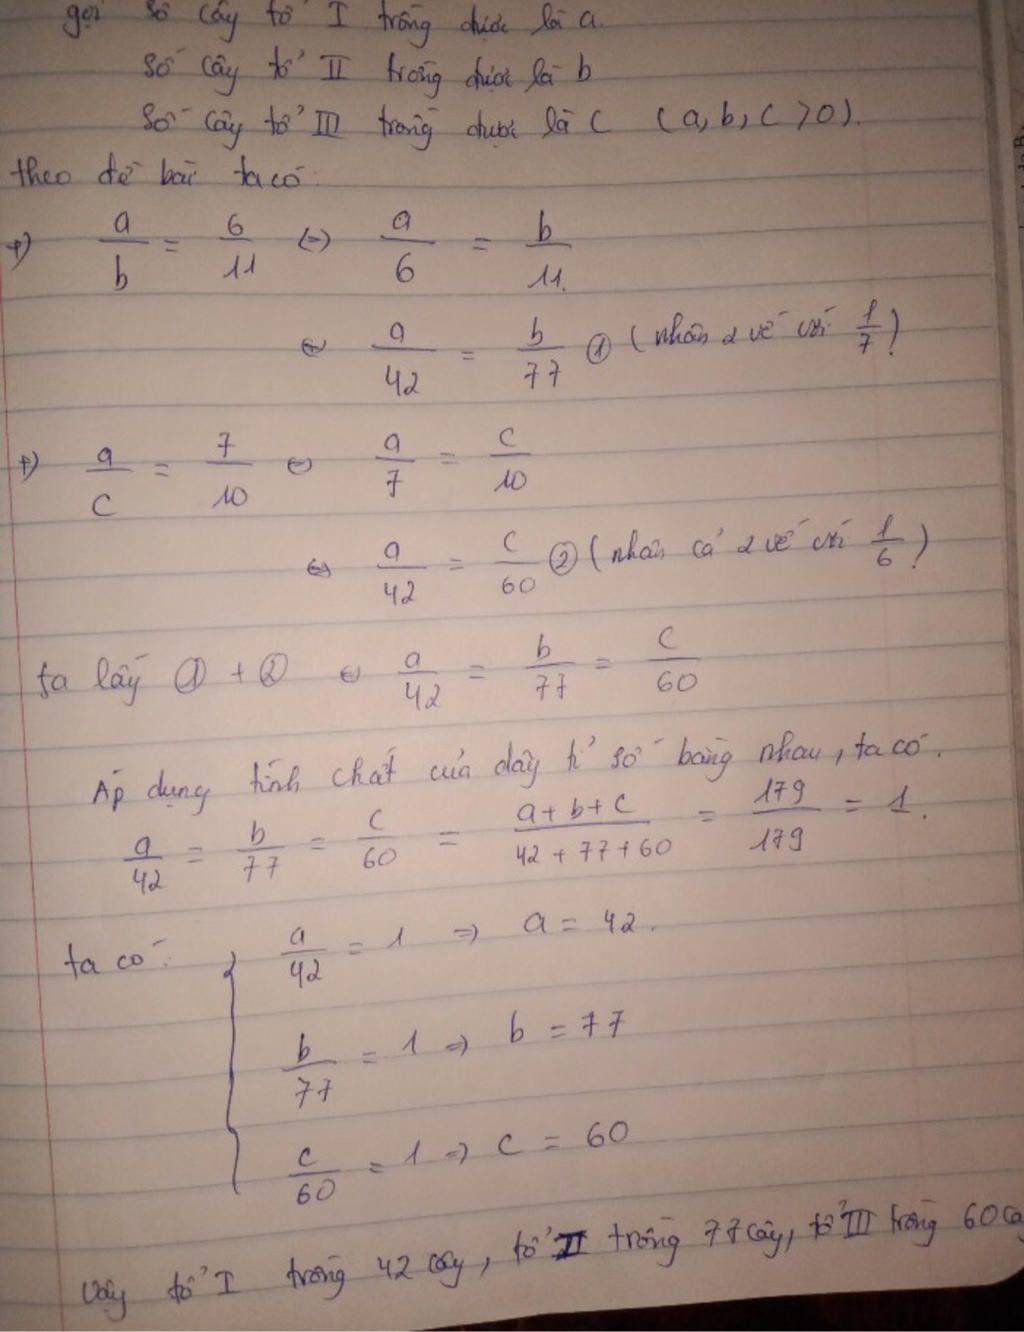 gọi số cây tổ I trồng được là a.
số cây tổ II trồng được là b
số cây tổ III trồng được là c (a, b, c > 0).
theo đề bài ta có:
+) a/b = 6/11 (=) a/6 = b/11.
(=) a/42 = b/77 ① (nhân 2 vế với 1/7)
+) a/c = 7/10 (=) a/7 = c/10
(=) a/42 = c/60 ② (nhân cả 2 vế với 1/6)
ta lấy ① + ② (=) a/42 = b/77 = c/60
Áp dụng tính chất của dãy tỉ số bằng nhau, ta có.
a/42 = b/77 = c/60 = a + b + c/42 + 77 + 60 = 179/179 = 1.
ta có: { a/42 = 1 => a = 42.
b/77 = 1 => b = 77
c/60 = 1 => c = 60
Vậy tổ I trồng 42 cây, tổ II trồng 77 cây, tổ III trồng 60